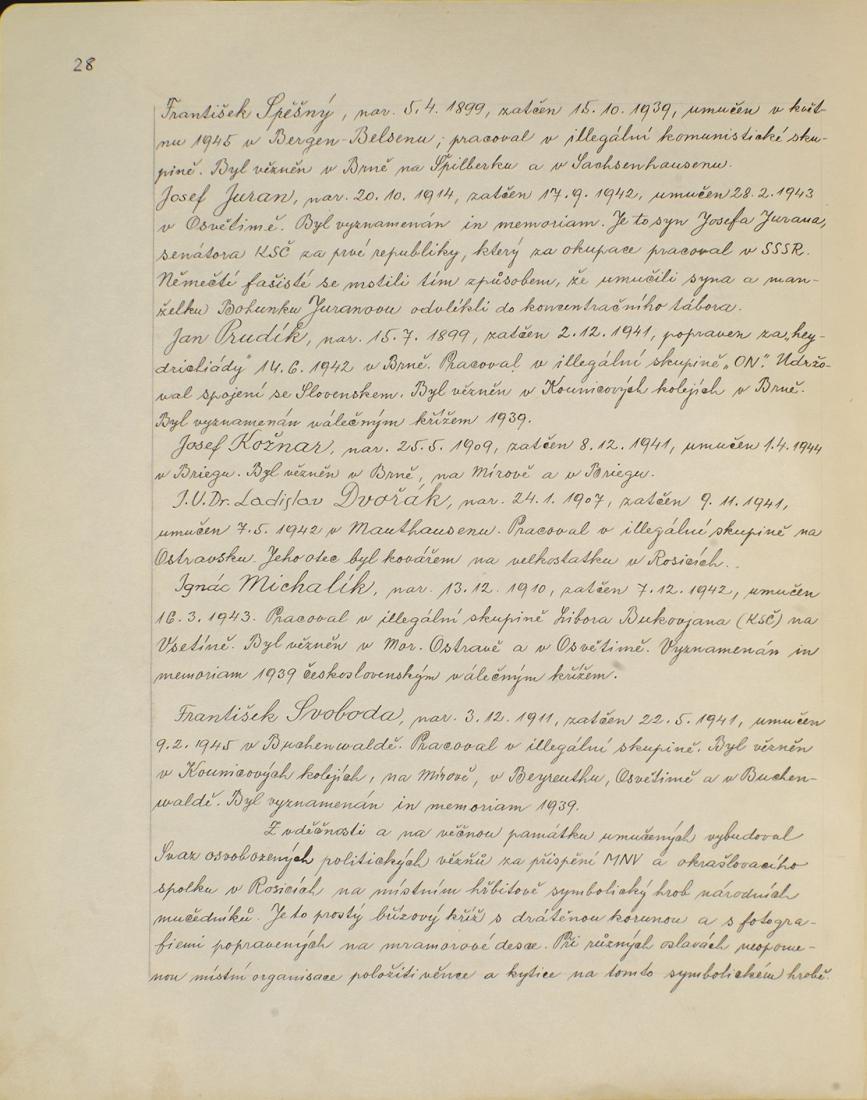 28
František Spěšný, nar. 5.4. 1899, zatčen 15.10.1939, umučen v květ-
nu 1945 v Bergen-Belsenu; pracoval v illegální komunistické sku-
pině. Byl vězněn v Brně na Špilberku a v Sachsenhausenu.
Josef Juran, nar. 20.10.1914, zatčen 17.9.1942, umučen 28.2.1943
v Osvětimě. Byl vyznamenán in memoriam. Je to syn Josefa Jurana,
senátora KSČ za prvé republiky, který za okupace pracoval v SSSR.
Němečtí fašisté se mstili tím způsobem, že umučili syna a man-
želku Bohunku Juranovu odvlékli do koncentračního tábora.
Jan Prudík, nar. 15.7. 1899, zatčen 2.12.1941, popraven za „hey-
drichiády" 14.6.1942 v Brně. Pracoval v illegální skupině „ON". Udržo-
val spojení se Slovenskem. Byl vězněn v Kounicových kolejích v Brně.
Byl vyznamenán válečným křížem 1939.
Josef Kožnar, nar. 25.5.1909, zatčen 8.12.1941, umučen 1.4.1944
v Briegu. Byl vězněn v Brně, na Mírově a v Briegu.
J.U.Dr. Ladislav Dvořák, nar. 24.1.1907, zatčen 9.11.1941,
umučen 7.5.1942 v Mauthausenu. Pracoval v illegální skupině na
Ostravsku. Jeho otec byl kovářem na velkostatku v Rosicích.
Ignác Michalík, nar. 13.12.1910, zatčen 7.12.1942, umučen
16.3.1943. Pracoval v illegální skupině Libora Bukovjana (KSČ) na
Vsetíně. Byl vězněn v Mor. Ostravě a v Osvětimě. Vyznamenán in
memoriam 1939 československým válečným křížem.
František Svoboda, nar. 3.12.1911, zatčen 22.5.1941, umučen
9.2.1945 v Buchenwaldě. Pracoval v illegální skupině. Byl vězněn
v Kounicových kolejích, na Mírově, v Beyreuthu, Osvětimě a v Buchen-
waldě. Byl vyznamenán in memoriam 1939.
Z vděčnosti a na věčnou památku umučených vybudoval
Svaz osvobozených politických vězňů za přispění MNV a okrašlovacího
spolku v Rosicích na místním hřbitově symbolický hrob národních
mučedníků. Je to prostý břízový kříž s drátěnou korunou a s fotogra-
fiemi popravených na mramorové desce. Při různých oslavách neopome-
nou místní organisace položiti věnce a kytice na tomto symbolickém hrobě.